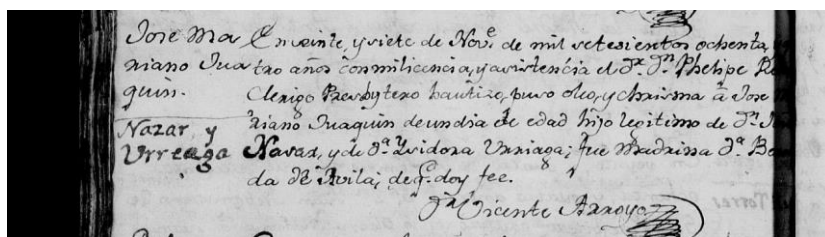 Jose Ma
riano Jua
quin.
Nazar, y
Urreaga
En veinte, y siete de Nov.e de mil setesientos ochenta, y
tro años con mi licencia, y asistencia el Dr. Dn. Phelipe
Clerigo Presbytero bautizo, puso oleo, y chrisma â Jose
riano Juaquin de un dia de edad hijo legitimo de Dn.
Navar, y de Da. Ysidora Urriaga; fue Madrina Da.
da de Avila; de q.e doy fee.
Dr. Vicente Arroyo